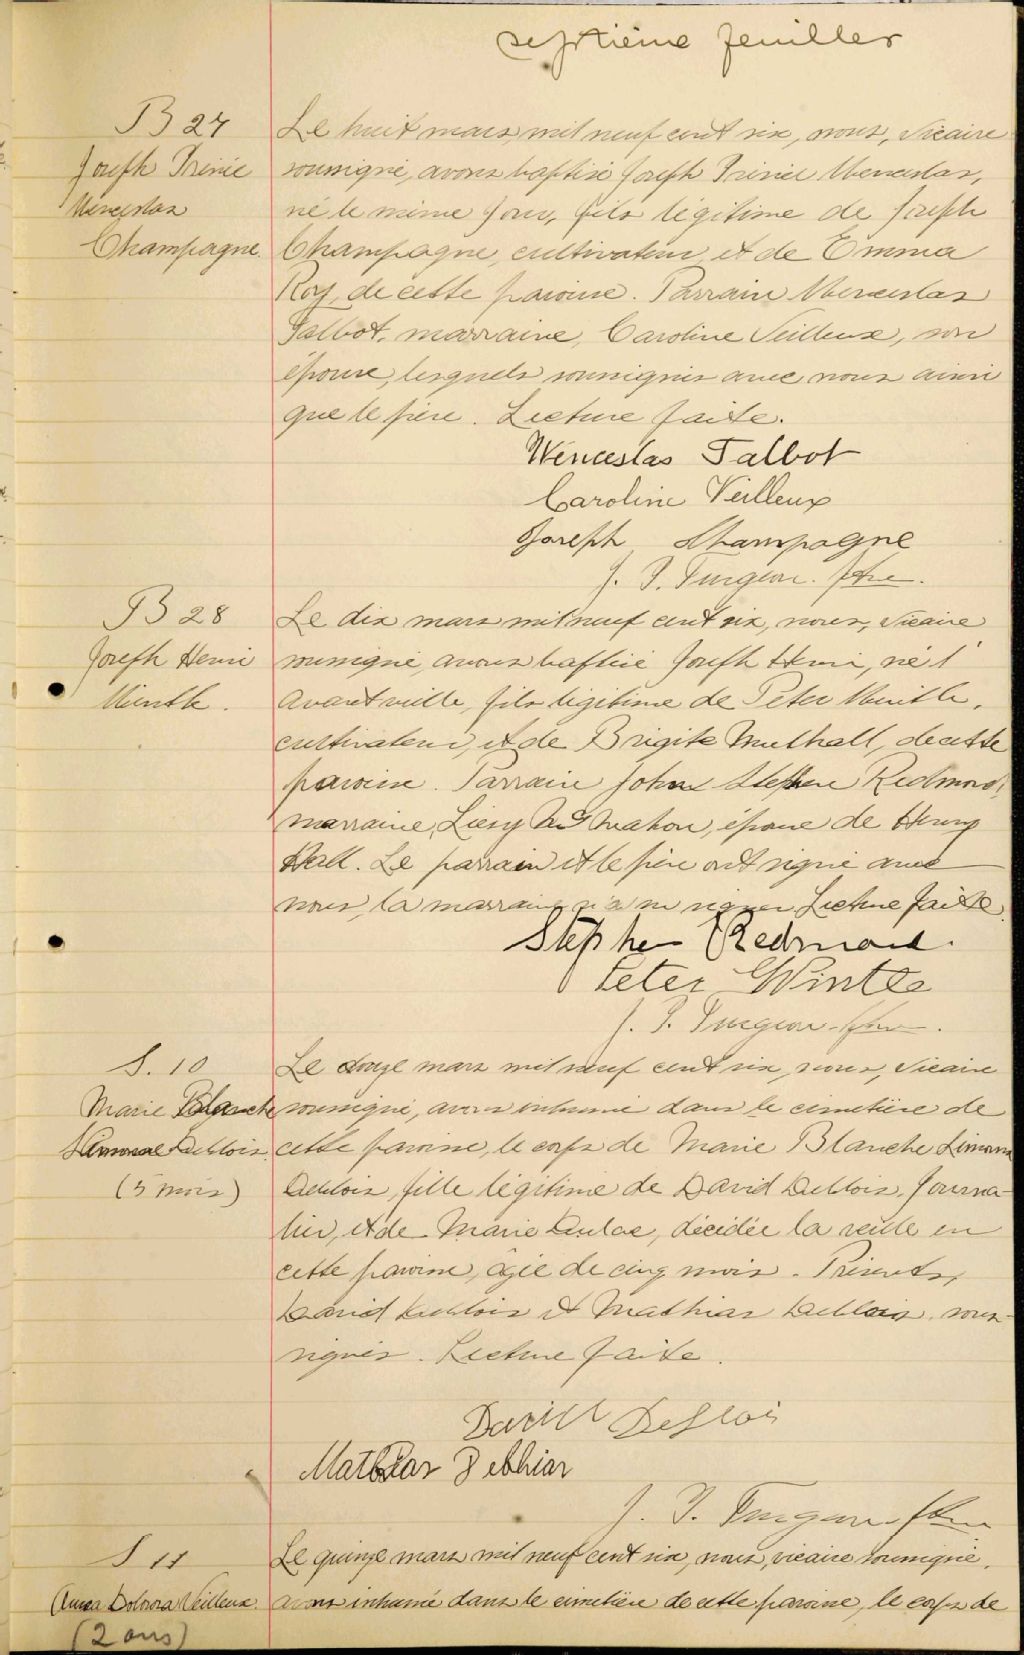 septième feuillet
B 27
Joseph Irénée
Wenceslas
Champagne.
Le huit mars mil neuf cent six, nous, vicaire
soussigné, avons baptisé Joseph Irénée Wenceslas,
né le même jour, fils légitime de Joseph
Champagne, cultivateur, et de Emma
Roy, de cette paroisse. Parrain Wenceslas
Talbot, marraine, Caroline Veilleux, son
épouse, lesquels soussignés avec nous ainsi
que le père. Lecture faite.
Wenceslas Talbot
Caroline Veilleux
Joseph Champagne
J. P. Turgeon. Ptre.
B 28
Joseph Henri
Wintle.
Le dix mars mil neuf cent six, nous, vicaire
soussigné, avons baptisé Joseph Henri, né l'
avant veille, fils légitime de Peter Wintle,
cultivateur, et de Brigite Mulhall, de cette
paroisse. Parrain John Stephen Redmond,
marraine, Liesy McMahon, épouse de Henry
Hall. Le parrain et le père ont signé avec
nous, la marraine n'a su signer. Lecture faite.
Stephen Redmond.
Peter Wintle
J. P. Turgeon. Ptre.
S. 10
Marie Blanche
Deblois.
(5 mois)
Le douze mars mil neuf cent six, nous, vicaire
soussigné, avons inhumé dans le cimetière de
cette paroisse, le corps de Marie Blanche
Deblois, fille légitime de David Deblois, journa-
lier, et de Marie Dulac, décédée la veille en
cette paroisse, âgée de cinq mois. Présents,
David Deblois et Mathias Deblois, sous-
signés. Lecture faite.
David
J. P. Turgeon Ptre
S 11
Dolorosa Veilleux.
(2 ans)
Le quinze mars mil neuf cent six, nous, vicaire soussigné,
avons inhumé dans le cimetière de cette paroisse, le corps de